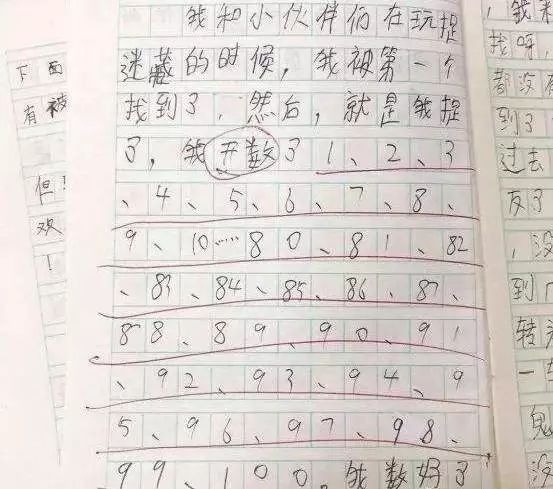 我和小伙伴们在玩捉
迷藏的时候，我被第一个
找到了．然后，就是我捉
了，我开数了1、2、3
、4、5、6、7、8、
9、10……80、81、82
、83、84、85、86、87、
88、89、90、91
、92、93、94、9
5、96、97、98、
99、100，我数好了
下面
有被
但！
欢
！
，我来
找呀，
都没有
到了
过去
反了
，没
到广
转
一
鬼
没